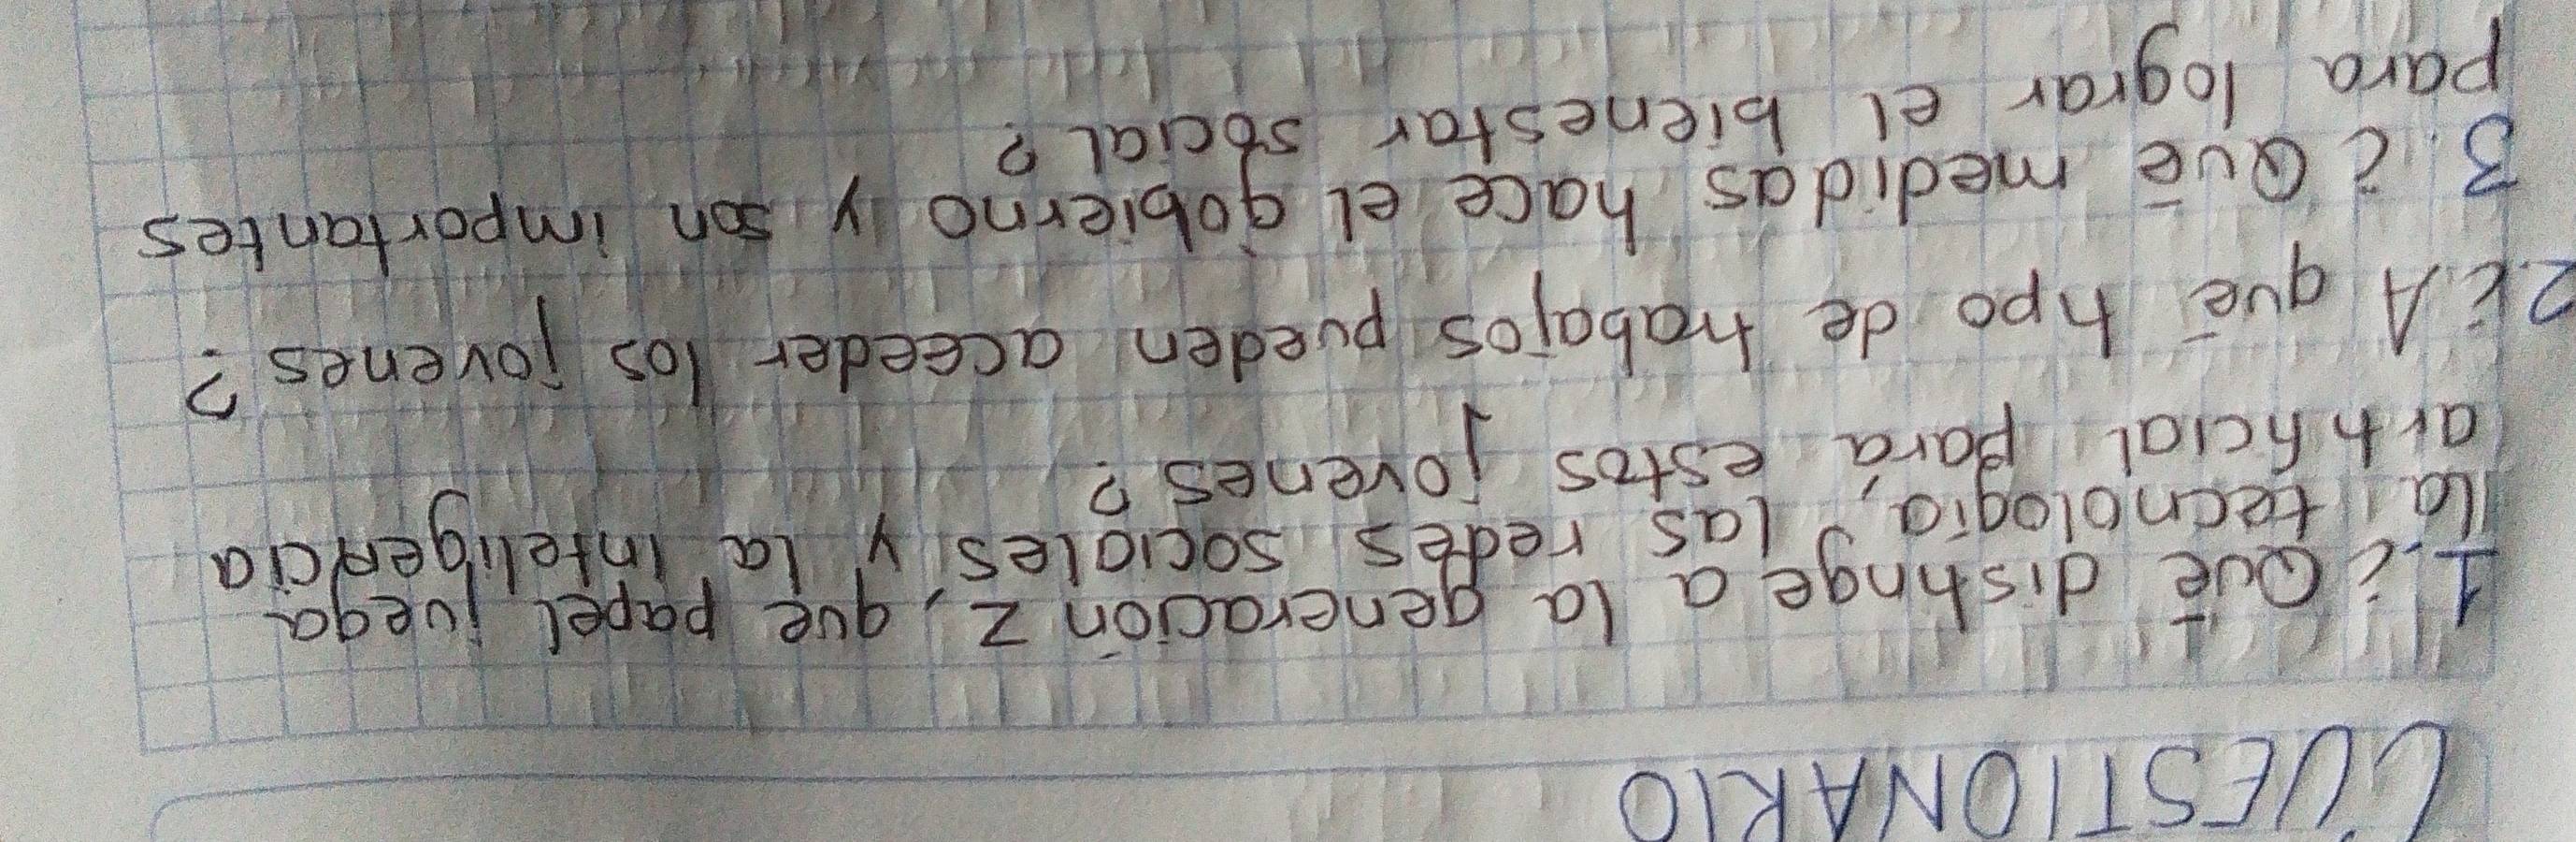 CUESTIONARIO
1. ¿Qué distinge a la generación Z, que papel juega
la tecnología, las redes sociales y la inteligencia
artificial para estos jovenes?
2. ¿A qué tipo de trabajos pueden acceder los jovenes?
3. ¿Qué medidas hace el gobierno y son importantes
para lograr el bienestar social?